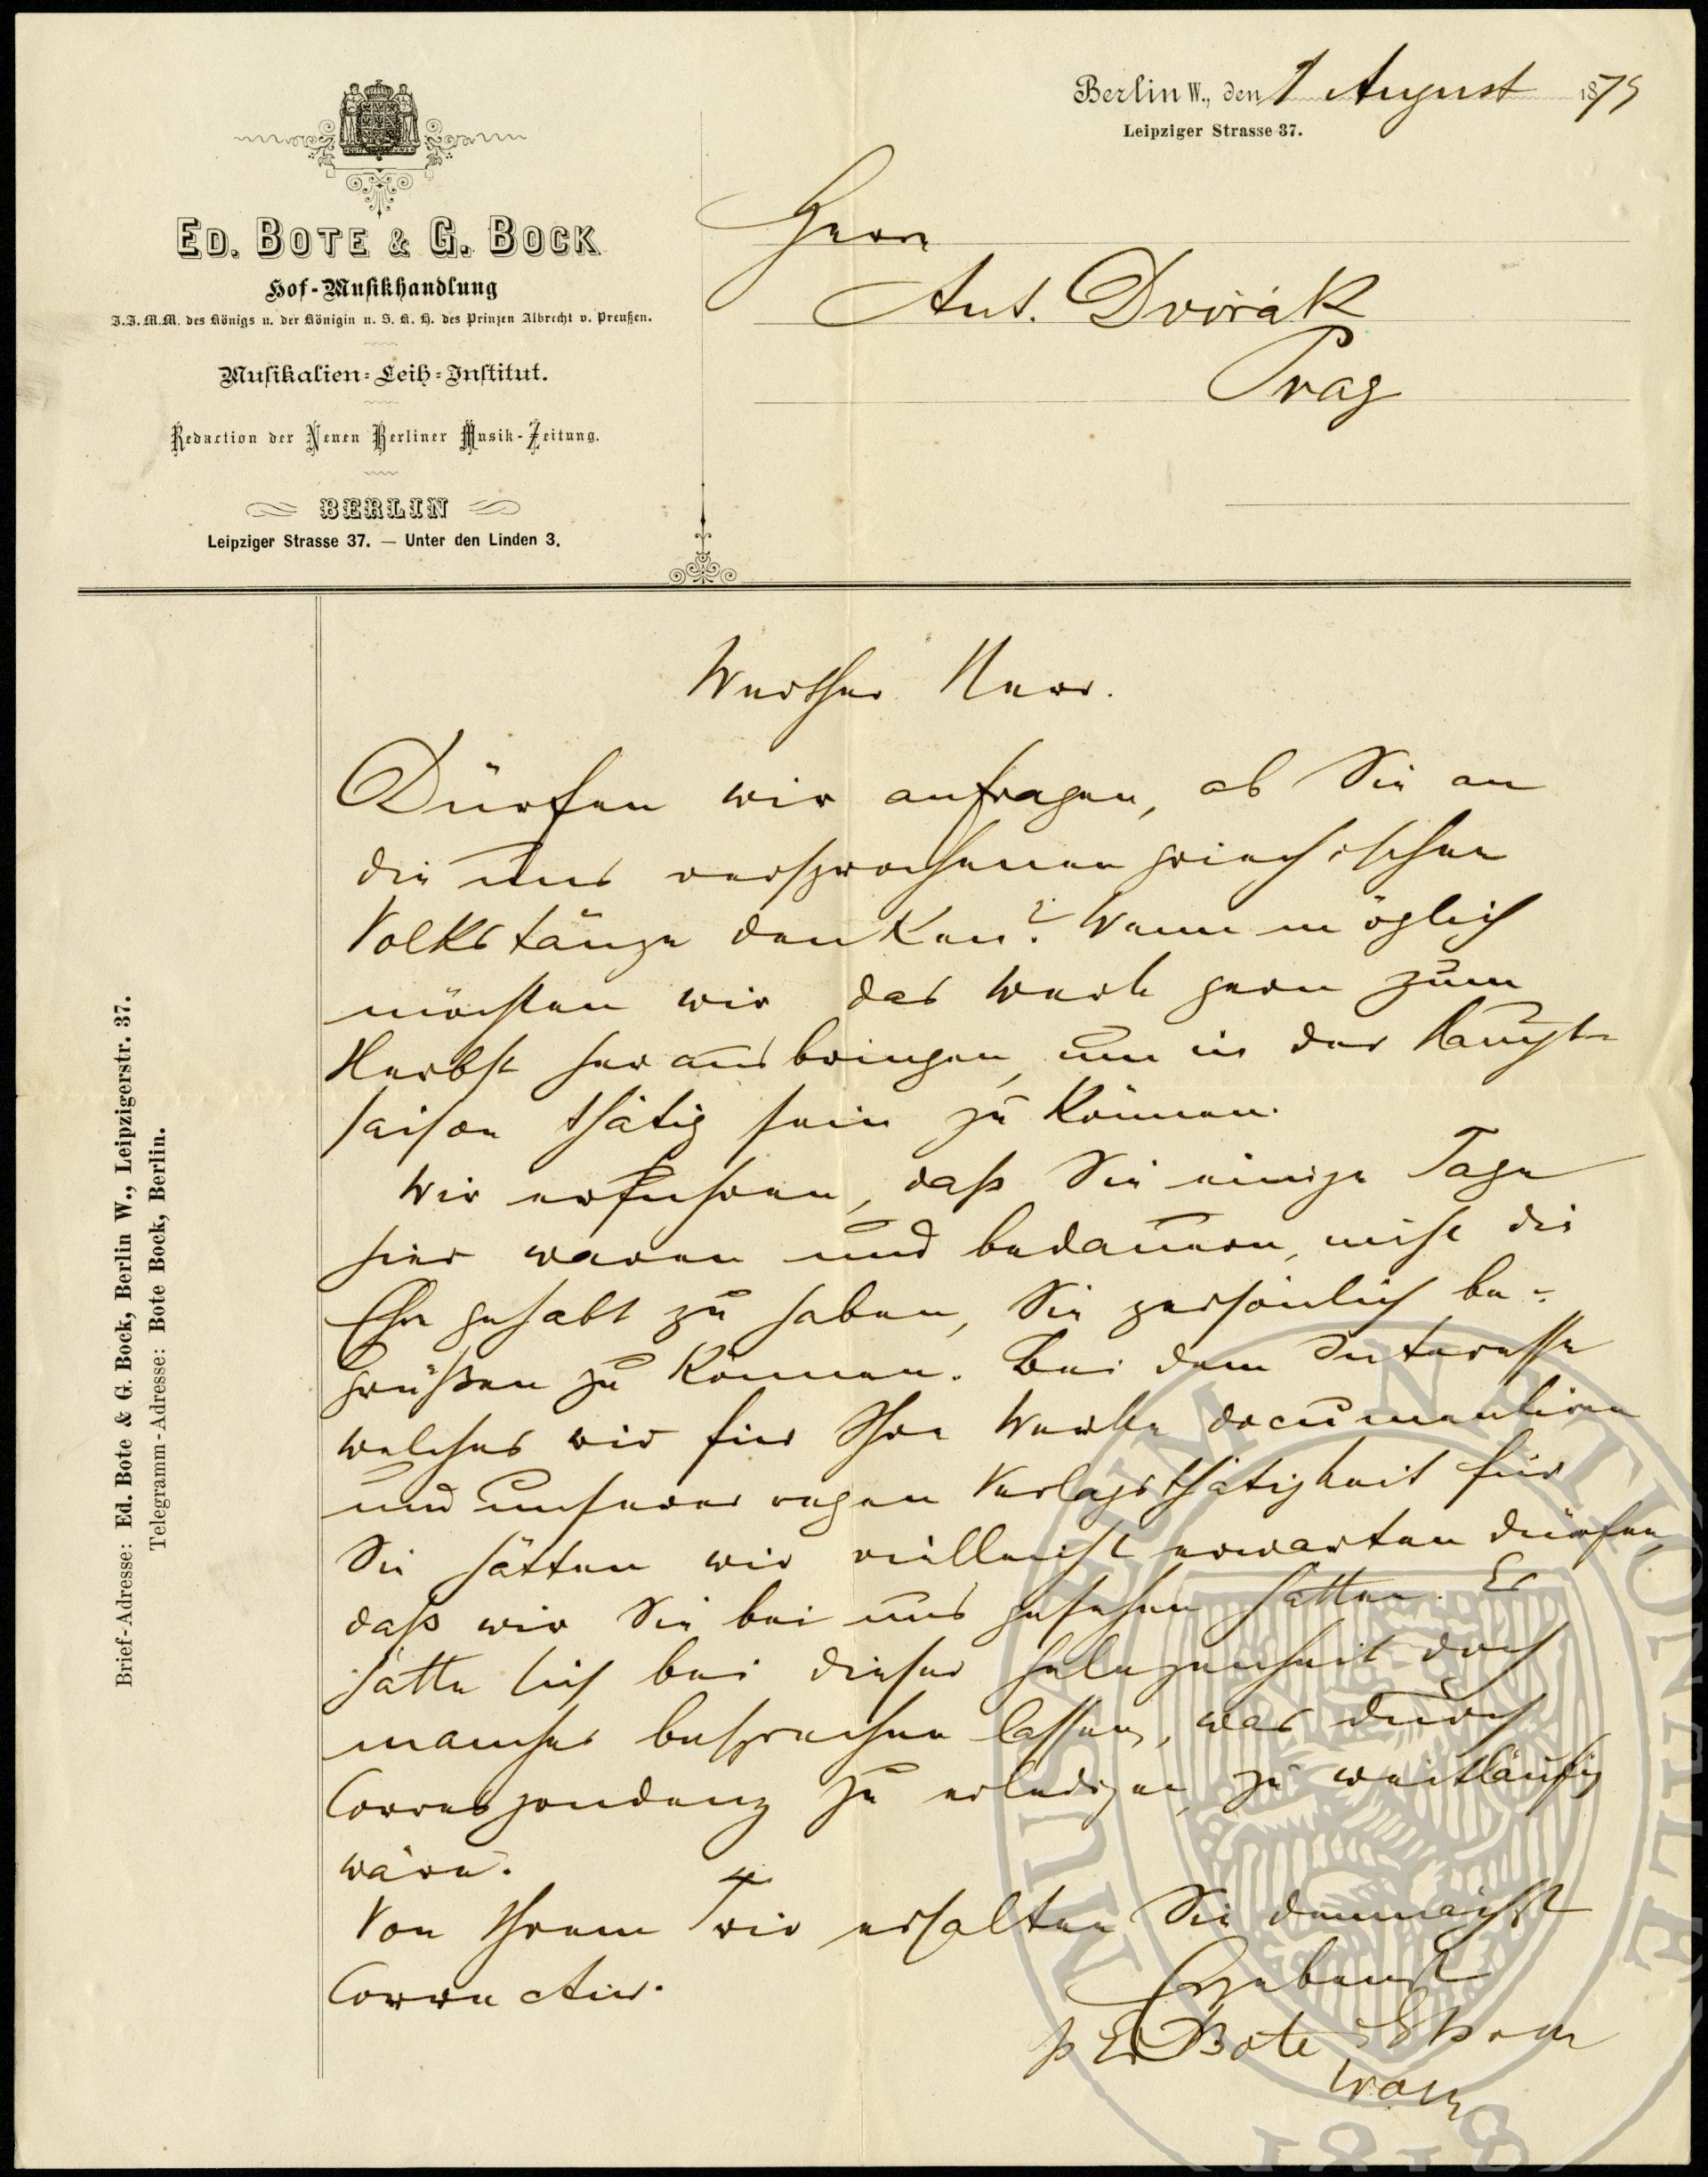 Berlin W., den 1 August 1879
Leipziger Strasse 37.
ED. BOTE & G. BOCK
Hof-Musikhandlung
J.J.M.M. des Königs u. der Königin u. S. K. H. des Prinzen Albrecht v. Preußen.
Musikalien-Leih-Institut.
Redaction der Neuen Berliner Musik-Zeitung.
BERLIN
Leipziger Strasse 37. — Unter den Linden 3.
Herrn
Ant. Dvořák
Prag
Brief-Adresse: Ed. Bote & G. Bock, Berlin W., Leipzigerstr. 37.
Telegramm-Adresse: Bote Bock, Berlin.
Werther Herr.
Dürfen wir anfragen, ob Sie an
die uns versprochenen griechischen
Volkstänze denken? Wenn möglich
möchten wir das Werk gern zum
Herbst herausbringen, um in der Haupt-
saison thätig sein zu können.
Wir erfuhren, daß Sie einige Tage
hier waren und bedauern, nicht die
Ehre gehabt zu haben, Sie persönlich be-
grüßen zu können. Bei dem Interesse
welches wir für Ihre Werke documentiren
und unserer regen Verlagsthätigkeit für
Sie hätten wir vielleicht erwarten dürfen,
daß wir Sie bei uns gesehen hätten. Es
hätte sich bei dieser Gelegenheit doch
manches besprechen lassen, was durch
Correspondenz zu erledigen, zu weitläufig
wäre.
Von Ihrem Trio erhalten Sie demnächst
Correctur.
Ergebenst
p Ed Bote & G Bock
MUSEUM NATIONALE
1818